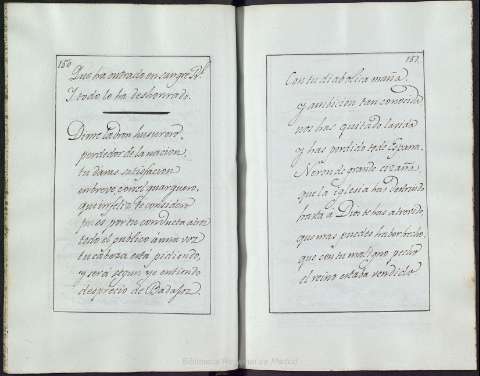 150
Que ha entrado en sangre Rl
Y todo le ha deshonrado.
Dime ladron husurero
perdedor de la nacion,
tu dame satisfacion
en breve, con
que infeliz te considero
pues por tu conducta
todo el publico á una voz
tu cabeza está pidiendo,
y será segun yo entiendo
desprecio de Badajoz.
151
Con tu diabolica maña,
y ambicion tan conocida
nos has quitado la vida
y has perdido toda España.
Neron de grande
que la Iglesia has destruido
hasta a Dios te has atrevido,
que mas puedes haber hecho,
que con tu maligno pecho
el reino estaba vendido
Biblioteca Regional de Madrid